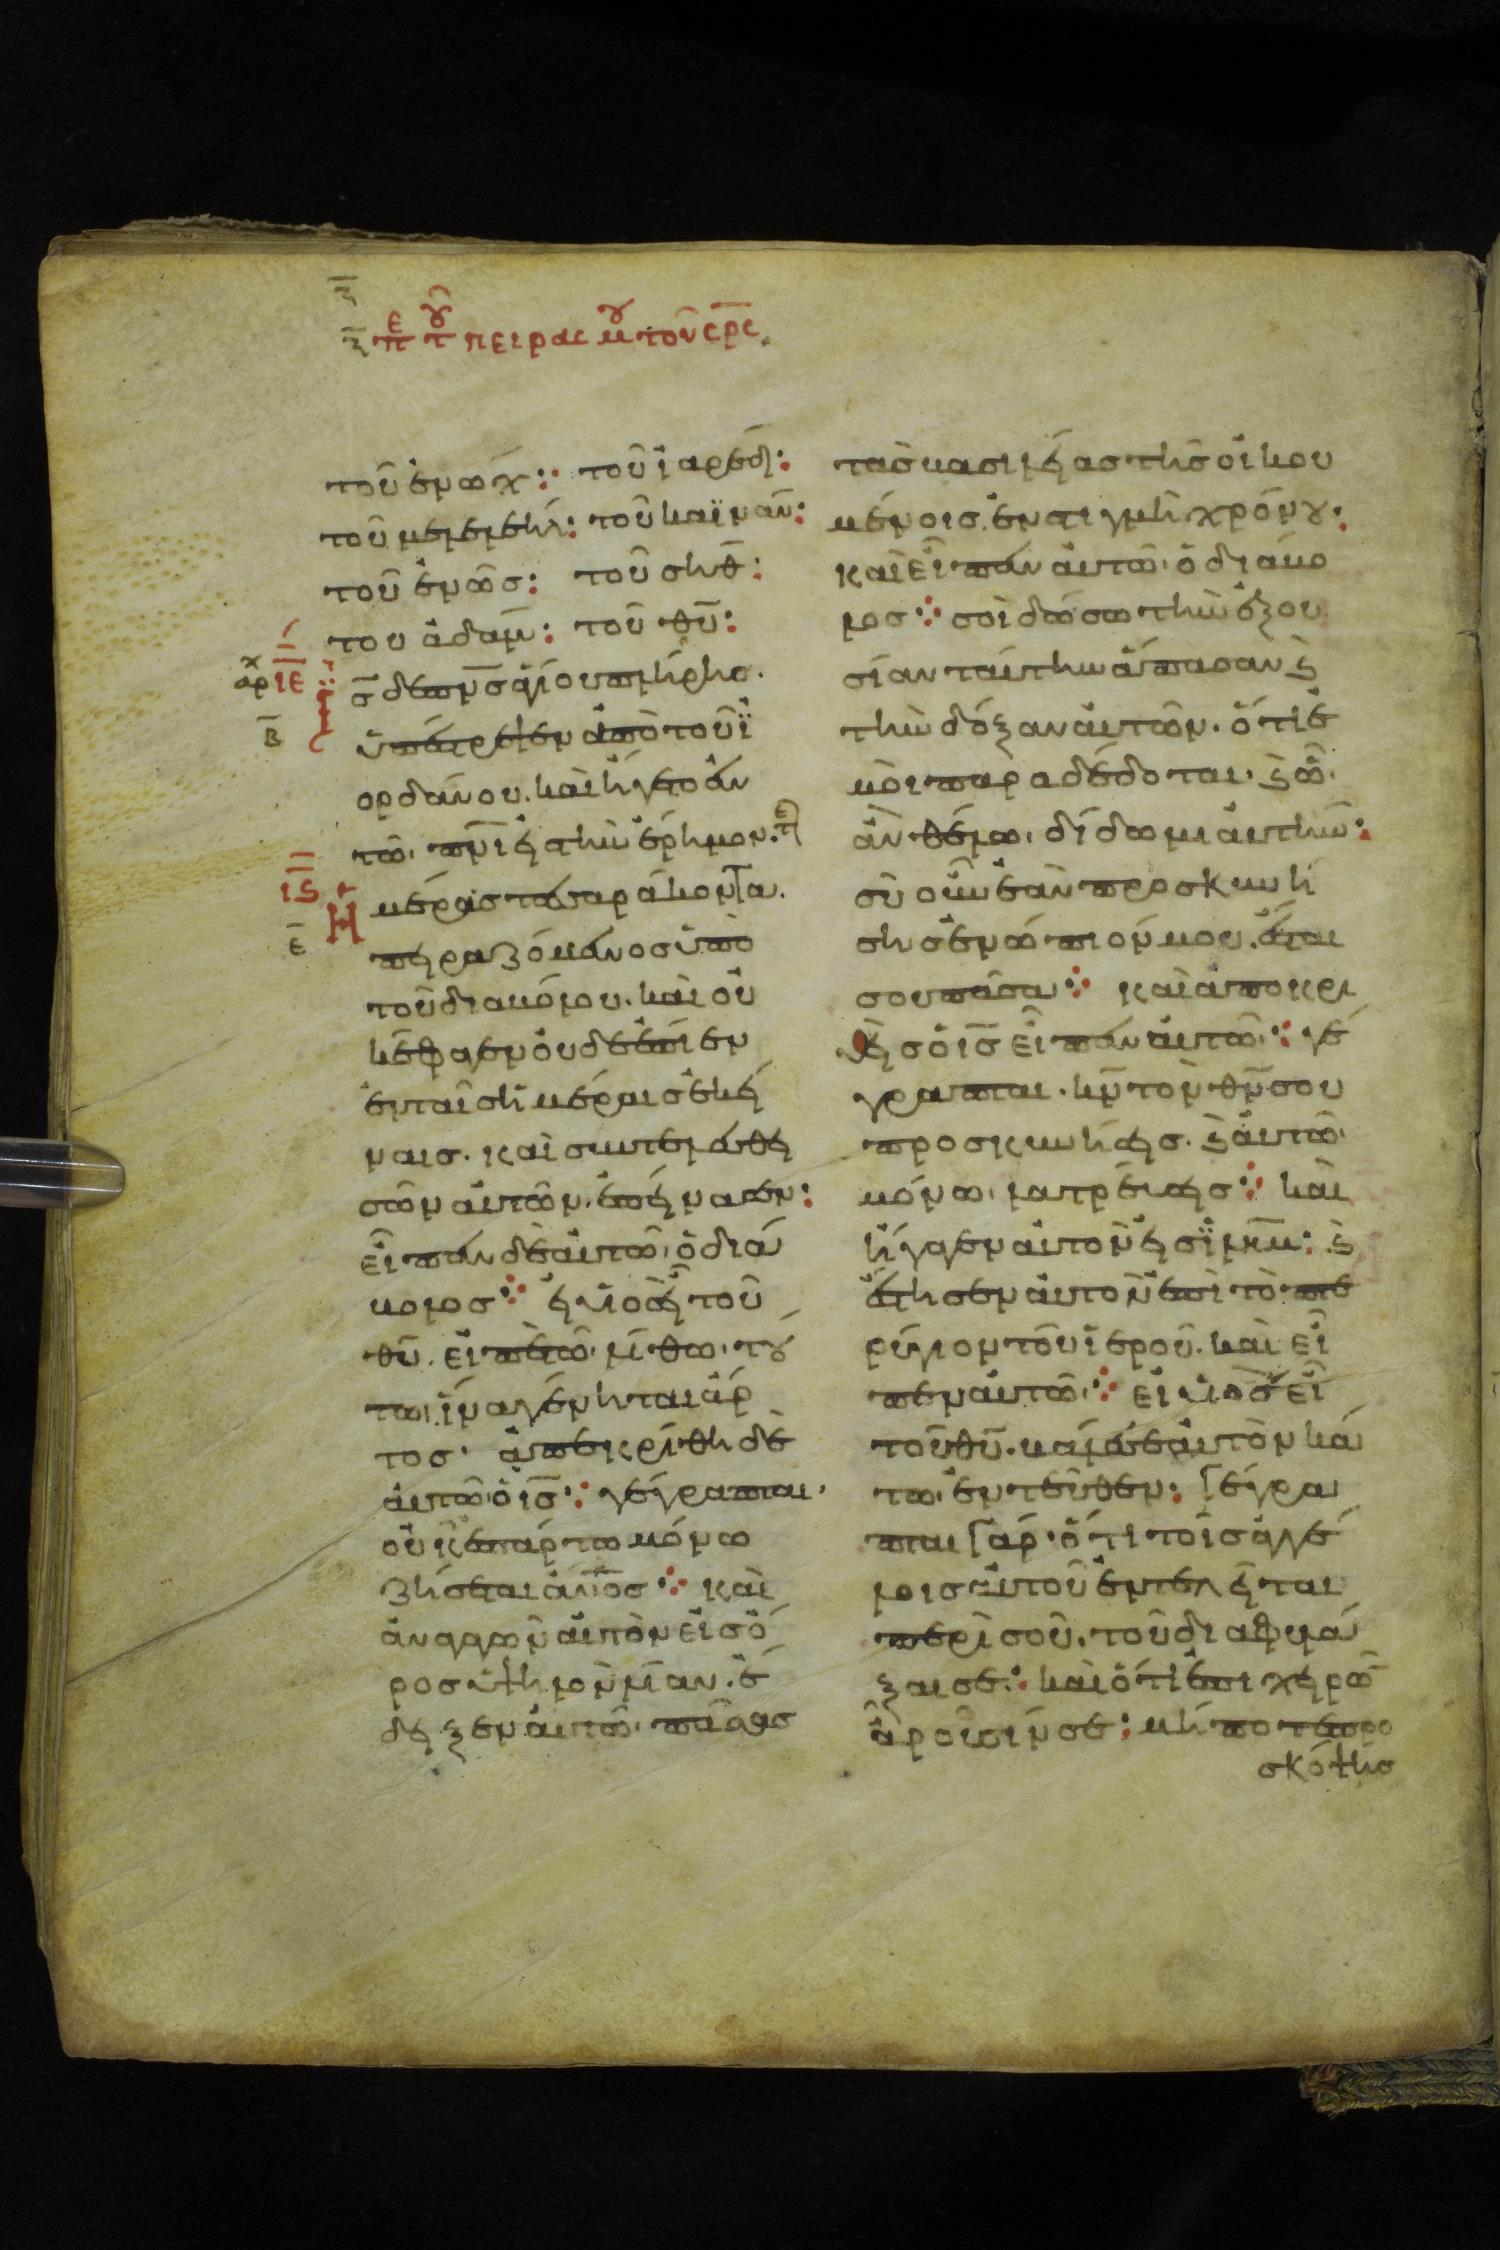 ζ
ζ περ τοῦ πειρασμοῦ τοῦ σρς
τοῦ ἐνώχ: τοῦ ἰαρέδ:
τοῦ μελελεήλ: τοῦ καϊνάν:
τοῦ ἐνῶς: τοῦ σήθ:
του ἀδάμ: τοῦ θῡ:
αρχ ΙΕ
ῑς δὲ πν̄ς ἁγίου πλήρης.
Β
ὑπέστρεψεν ἀπὸ τοῦ ἰ
ορδάνου. καὶ ἤγετο ἐν
τῶ πν̄ι εἰς τὴν ἔρημον.
Ις
Ε
Ἡμέρας τεσσαράκοντα.
πειραζόμενος ὑπὸ
τοῦ διαβόλου. καὶ οὐ
κ ἔφαγεν οὐδὲ ἔπιεν
ἐν ταῖς ἡμέραις ἐκεί
ναις. καὶ συντελεσθει
σῶν αὐτῶν. ἐπείνασεν:
εἶπεν δὲ αὐτῶ ὁ διά
βολος ⁘ εἰ υἱὸς εἶ τοῦ
θῡ. εἰπὲ τῶ λίθω τού
τω ἵνα γένηται ἄρ
τος. ἀπεκρίθη δὲ
αὐτῶ ὁ ῑς ⁘ γέγραπται.
οὐκ ἐπ' ἄρτω μόνω
ζήσεται ἄν̄ος ⁘ καὶ
ἀναγαγὼν αὐτὸν εἰς ὄ
ρος ὑψηλὸν λίαν. ἔ
δειξεν αὐτῶ πάσας
τὰς βασιλείας τῆς οἰκου
μένης. ἐν στιγμῆ χρόνου:
καὶ εἶπεν αὐτῶ ὁ διάβο
λος ⁘ σοὶ δώσω τὴν ἐξου
σίαν ταύτην ἅπασαν ϗ
τὴν δόξαν αὐτῶν. ὅτι ἐ
μοὶ παραδέδοται. ϗ ὧ
ἂν θέλω δίδωμι αὐτήν:
σὺ οὖν ἐὰν προσκυνή
σης ἐνώπιόν μου. ἔσται
σου πᾶσα ⁘ καὶ ἀποκρι
θεὶς ὁ ῑς εἶπεν αὐτῶ ⁘ γέ
γραπται. κν̄ τὸν θν̄ σου
προσκυνήσεις. ϗ αὐτῶ
μόνω λατρεύσεις ⁘ καὶ
ἤγαγεν αὐτὸν εἰς ἰλημ̄: ϗ
ἔστησεν αὐτὸν ἐπὶ τὸ πτε
ρύγιον τοῦ ἱεροῦ. καὶ εἶ
πεν αὐτῶ ⁘ εἰ υἱὸς εἶ
τοῦ θῡ. βάλε σεαυτὸν κά
τω ἐντεῦθεν: γέγρα
πται γὰρ ὅτι τοῖς ἀγγέ
λοις αὐτοῦ ἐντελεῖται
περὶ σοῦ. τοῦ διαφυλά
ξαι σε ⁘ καὶ ὅτι ἐπὶ χειρῶν
ἀροῦσίν σε: μήποτε προ
σκόψης